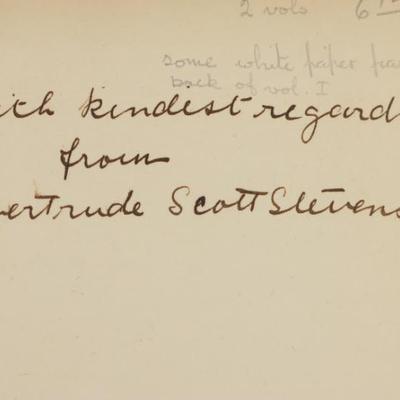 2 vols 6
some white paper
back of vol. I
ith kindest regard
from
ertrude Scott Stevens